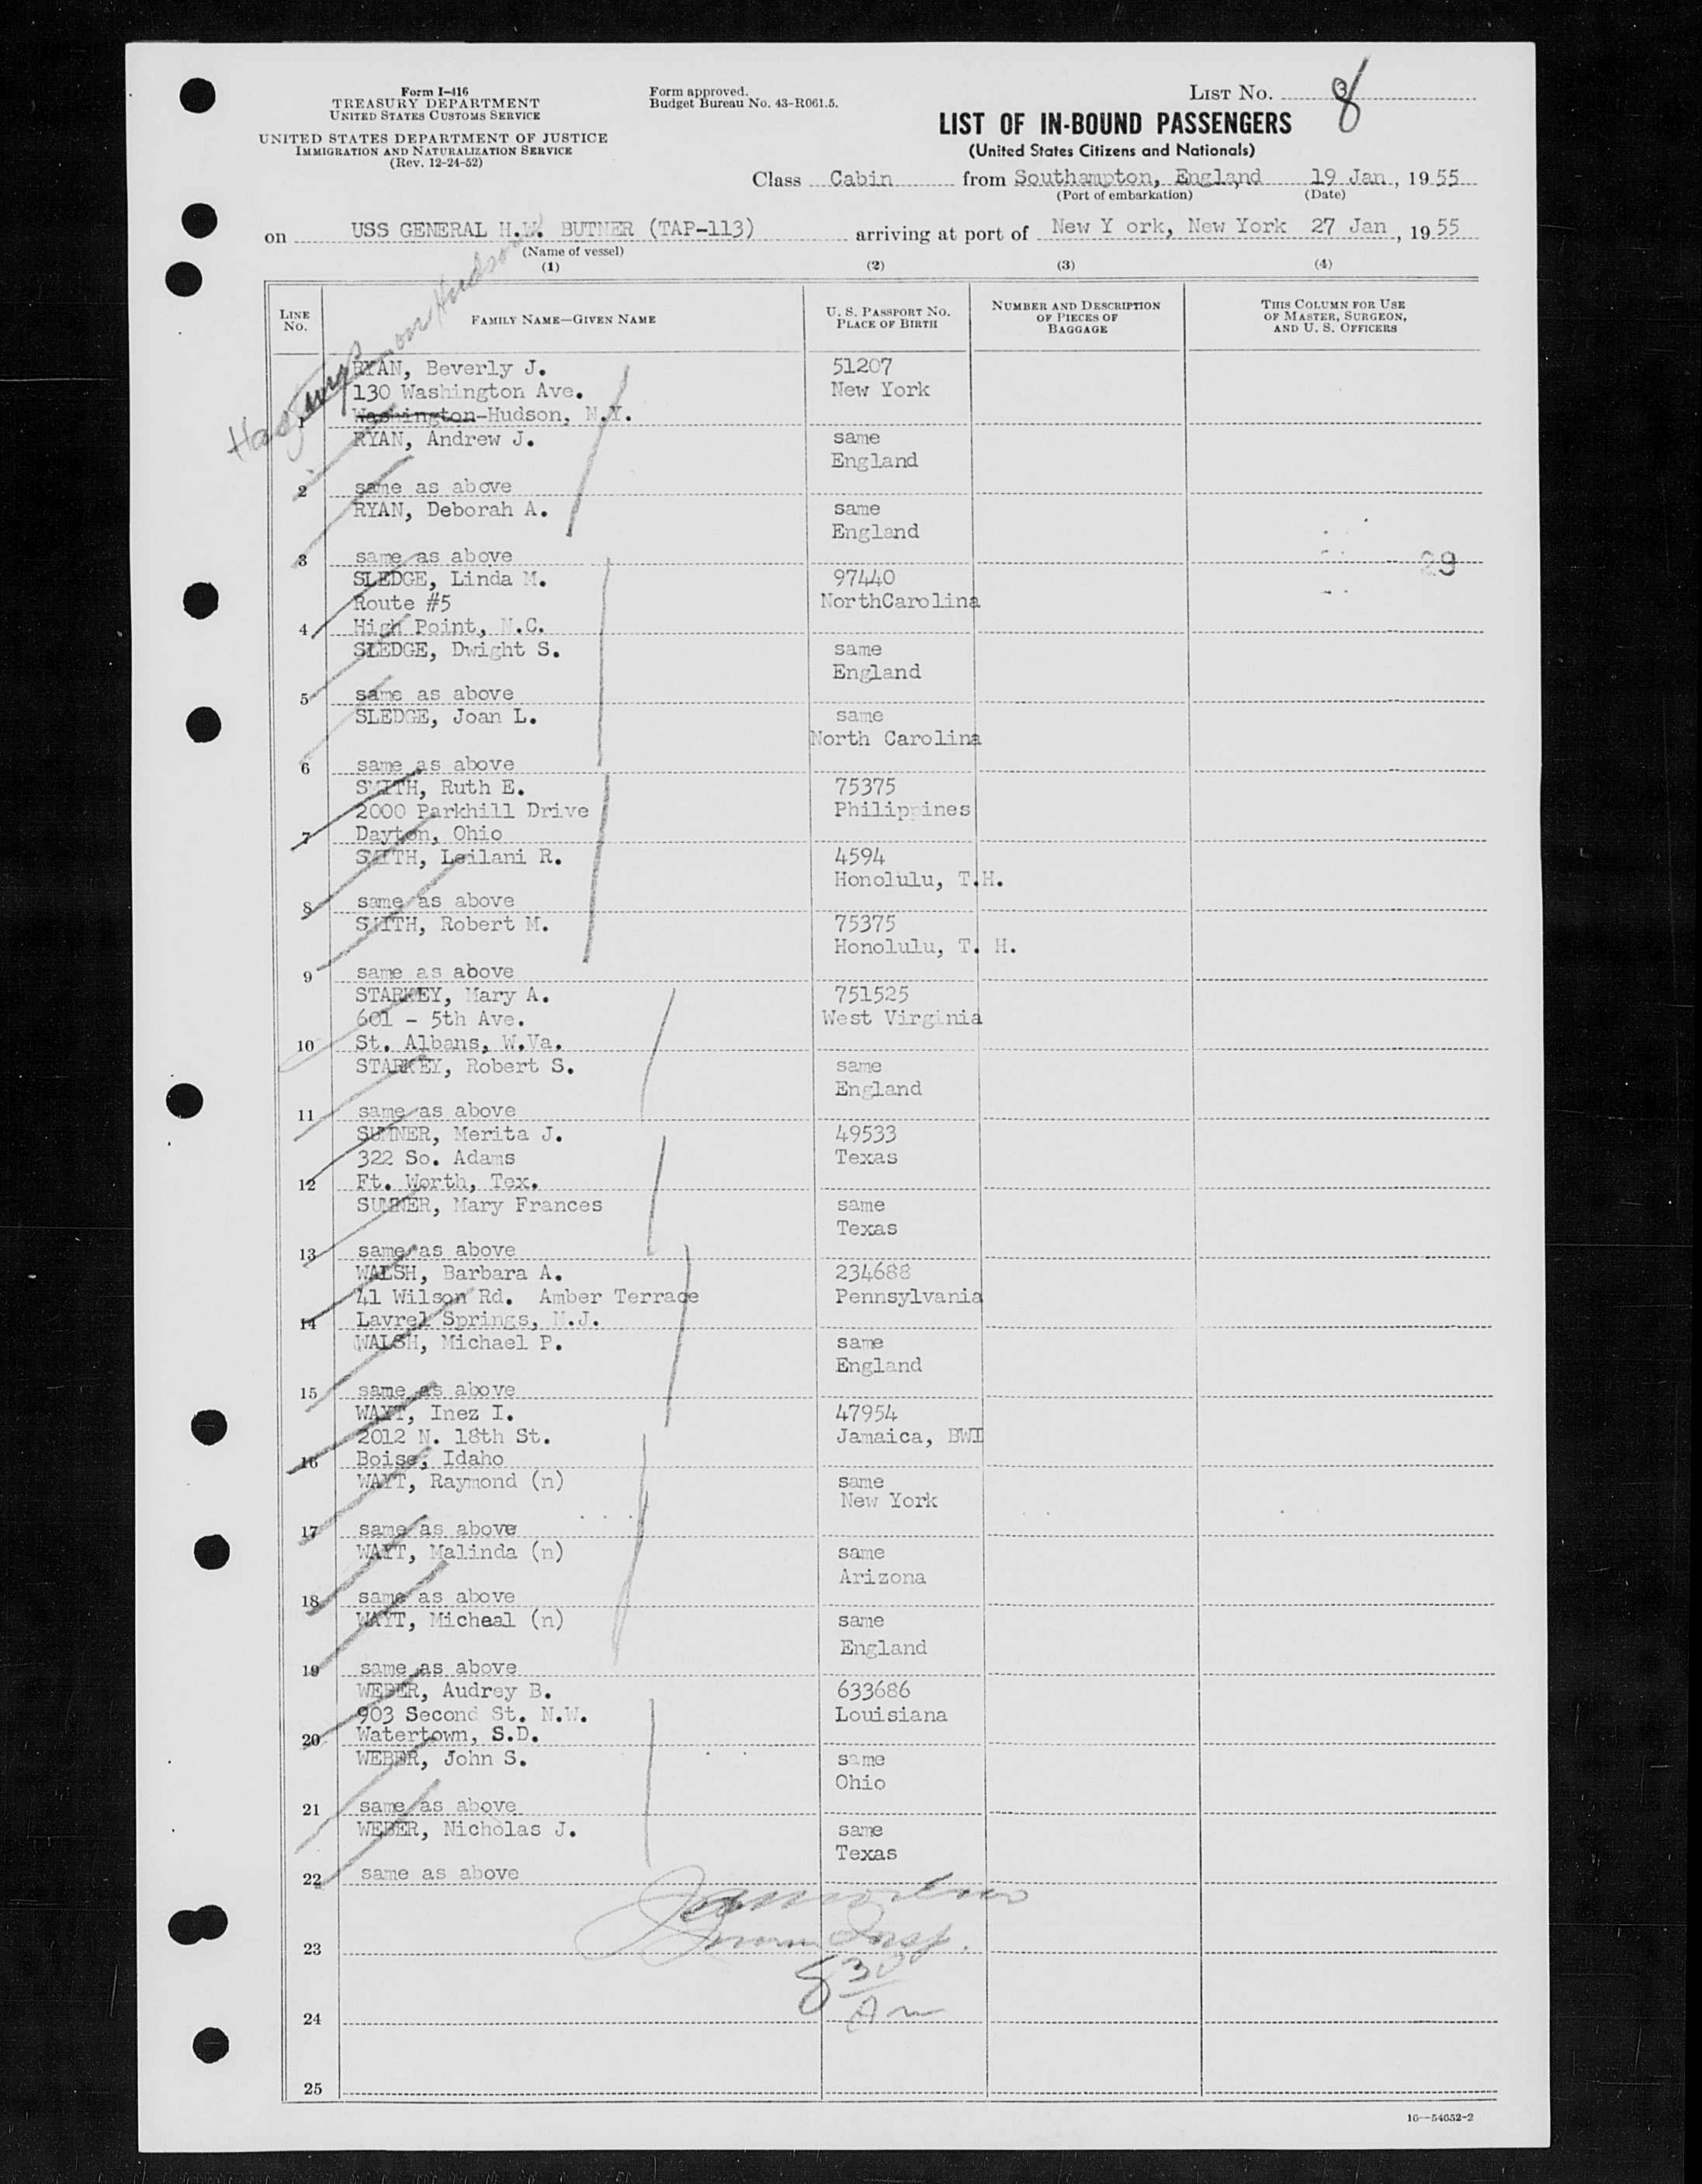 Form I-416
TREASURY DEPARTMENT
UNITED STATES CUSTOMS SERVICE
UNITED STATES DEPARTMENT OF JUSTICE
IMMIGRATION AND NATURALIZATION SERVICE
(Rev. 12-24-52)
Form approved.
Budget Bureau No. 43-R061.5.
LIST NO. 8
LIST OF IN-BOUND PASSENGERS
(United States Citizens and Nationals)
Class Cabin from Southampton, England 19 Jan, 1955
(Port of embarkation) (Date)
on USS GENERAL H.W. BUTNER (TAP-113) arriving at port of New Y ork, New York 27 Jan, 1955
(Name of vessel)
(1) (2) (3) (4)
LINE NO. FAMILY NAME—GIVEN NAME U. S. PASSPORT NO. PLACE OF BIRTH NUMBER AND DESCRIPTION OF PIECES OF BAGGAGE THIS COLUMN FOR USE OF MASTER, SURGEON, AND U. S. OFFICERS
Hastings on Hudson
RYAN, Beverly J. 51207
130 Washington Ave. New York
Washington-Hudson, N.Y.
RYAN, Andrew J. same
England
2 same as above
RYAN, Deborah A. same
England
3 same as above 29
SLEDGE, Linda M. 97440
Route #5 NorthCarolina
4 High Point, N.C.
SLEDGE, Dwight S. same
England
5 same as above
SLEDGE, Joan L. same
North Carolina
6 same as above
SMITH, Ruth E. 75375
2000 Parkhill Drive Philippines
7 Dayton, Ohio
SMITH, Leilani R. 4594
Honolulu, T.H.
8 same as above
SMITH, Robert M. 75375
Honolulu, T. H.
9 same as above
STARKEY, Mary A. 751525
601 - 5th Ave. West Virginia
10 St. Albans, W.Va.
STARKEY, Robert S. same
England
11 same as above
SUMNER, Merita J. 49533
322 So. Adams Texas
12 Ft. Worth, Tex.
SUMNER, Mary Frances same
Texas
13 same as above
WALSH, Barbara A. 234688
41 Wilson Rd. Amber Terrace Pennsylvania
14 Lavrel Springs, N.J.
WALSH, Michael P. same
England
15 same as above
WAYT, Inez I. 47954
2012 N. 18th St. Jamaica, BWI
16 Boise, Idaho
WAYT, Raymond (n) same
New York
17 same as above
WAYT, Malinda (n) same
Arizona
18 same as above
WAYT, Micheal (n) same
England
19 same as above
WEBER, Audrey B. 633686
903 Second St. N.W. Louisiana
20 Watertown, S.D.
WEBER, John S. same
Ohio
21 same as above
WEBER, Nicholas J. same
Texas
22 same as above
23
8 30
24 Am
25
16—54652-2